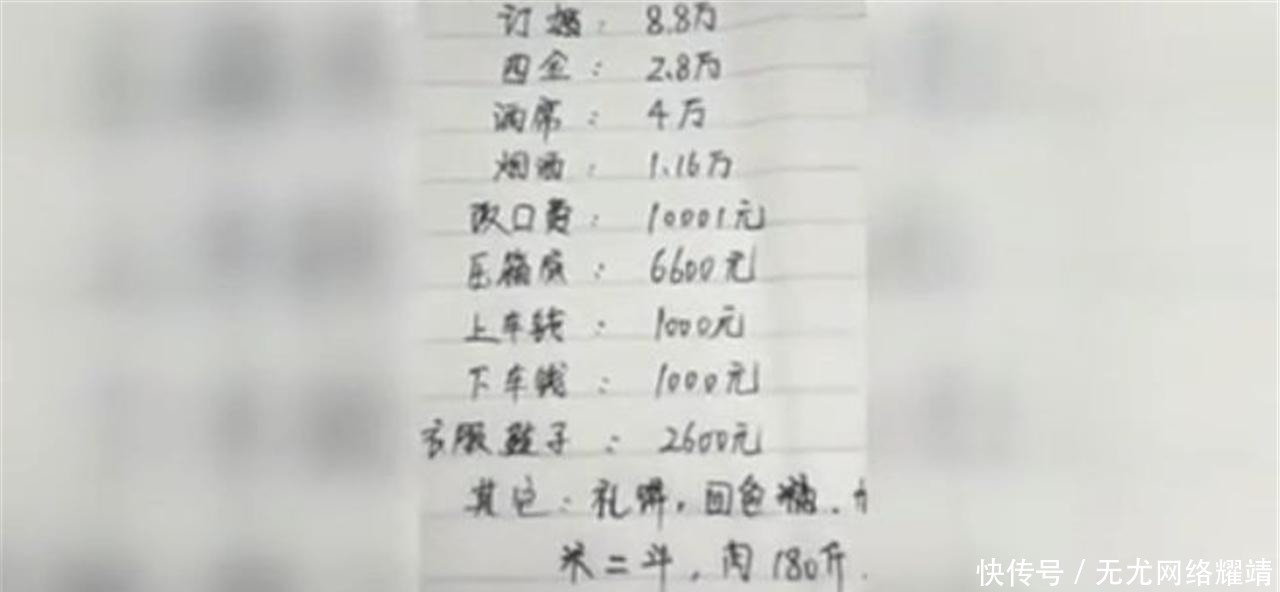 订婚：8.8万
四金：2.8万
酒席：4万
烟酒：1.16万
改口费：10001元
压箱底：6600元
上车钱：1000元
下车钱：1000元
衣服鞋子：2600元
其它：礼饼，四色糖、
米二斗，肉180斤.
快传号/无尤网络耀靖